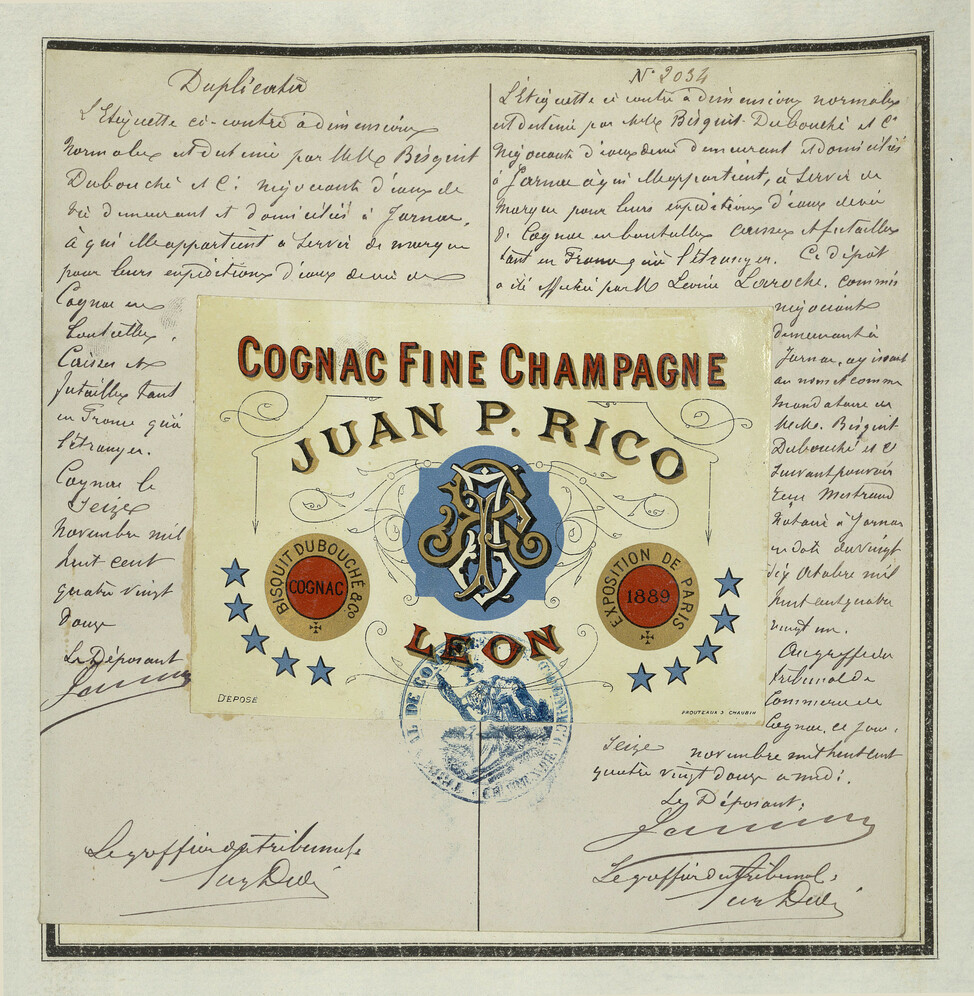 Duplicata
L'Etiquette ci-contre à dimensions
normales est destinée par MM Bisquit
Dubouché et Cie négociants d'eaux de
vie demeurant et domiciliés à Jarnac,
à qui elle appartient à servir de marque
pour leurs expéditions d'eaux de vie de
Cognac en
bouteilles,
Caisses et
futailles tant
en France qu'à
l'étranger.
Cognac le
Seize
novembre mil
huit cent
quatre vingt
douze
Le Déposant
Le greffier du tribunal
N° 2034
L'Etiquette ci contre à dimensions normales
est destinée par MM Bisquit-Dubouché et Cie
Négociants d'eaux de vie demeurant et domiciliés
à Jarnac à qui elle appartient, à servir de
marque pour leurs expéditions d'eaux de vie
de Cognac en bouteilles caisses et futailles
tant en France qu'à l'étranger. Ce dépôt
a été effectué par M Larroche, commis
négociant
demeurant à
Jarnac, agissant
au nom et comme
mandataire de
MM. Bisquit
Dubouché et Cie
suivant pouvoir
notaire à Jarnac
en date du vingt
six Octobre mil
huit cent quatre
vingt un.
Au greffe du
tribunal de
Commerce de
Cognac, ce jour,
Seize novembre mil huit cent
quatre vingt douze a midi.
Le Déposant,
Le greffier du tribunal,
COGNAC FINE CHAMPAGNE
JUAN P. RICO
BISQUIT DUBOUCHÉ & Co
COGNAC
EXPOSITION DE PARIS
1889
LEON
DEPOSE